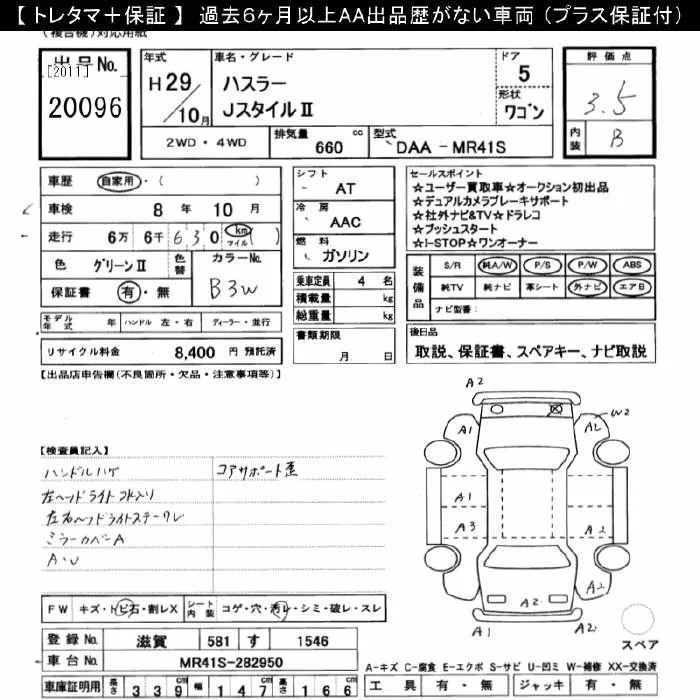 【 トレタマ＋保証 】 過去６ヶ月以上ＡＡ出品歴がない車両（プラス保証付）
(複合機)対応用紙
出品No.
[2011]
20096
年式
H 29 / 10月
車名・グレード
ハスラー
JスタイルⅡ
ドア
5
形状
ワゴン
2WD・4WD
排気量
660 cc
型式
DAA - MR41S
評価点
3.5
内装
B
車歴 自家用・( )
車検 8 年 10 月
走行 6万 6千 630 km マイル ( )
色 グリーンⅡ
色替
カラーNo.
B3W
保証書 有・無
シフト
AT
冷房
AAC
燃料
ガソリン
乗車定員 4 名
積載量 kg
総重量 kg
セールスポイント
☆ユーザー買取車☆オークション初出品
☆デュアルカメラブレーキサポート
☆社外ナビ&TV☆ドラレコ
☆プッシュスタート
☆I-STOP☆ワンオーナー
装備品
S/R 純A/W P/S P/W ABS
純TV 純ナビ 革シート 外ナビ エアB
ナビ型番：
モデル年式 年 ハンドル 左・右 ディーラー・並行
リサイクル料金 8,400 円 預託済
書類期限
月 日
後日品
取説、保証書、スペアキー、ナビ取説
【出品店申告欄(不良箇所・欠品・注意事項等)】
【検査員記入】
ハンドルハゲ
コアサポート歪
左ヘッドライト水入り
左右ヘッドライトステークレ
ミラーカバーA
A・U
A2
A1
A2
W2
A1
A3
A2
A2
A2
A1
A2
スペア
FW キズ・トビ石・割レX
シート内装 コゲ・穴・汚レ・シミ・破レ・スレ
登録 No. 滋賀 581 す 1546
車台 No. MR41S-282950
車庫証明用 長さ 339 幅 147 高さ 166
A-キズ C-腐食 E-エクボ S-サビ U-凹ミ W-補修 XX-交換済
工具 有・無 ジャッキ 有・無